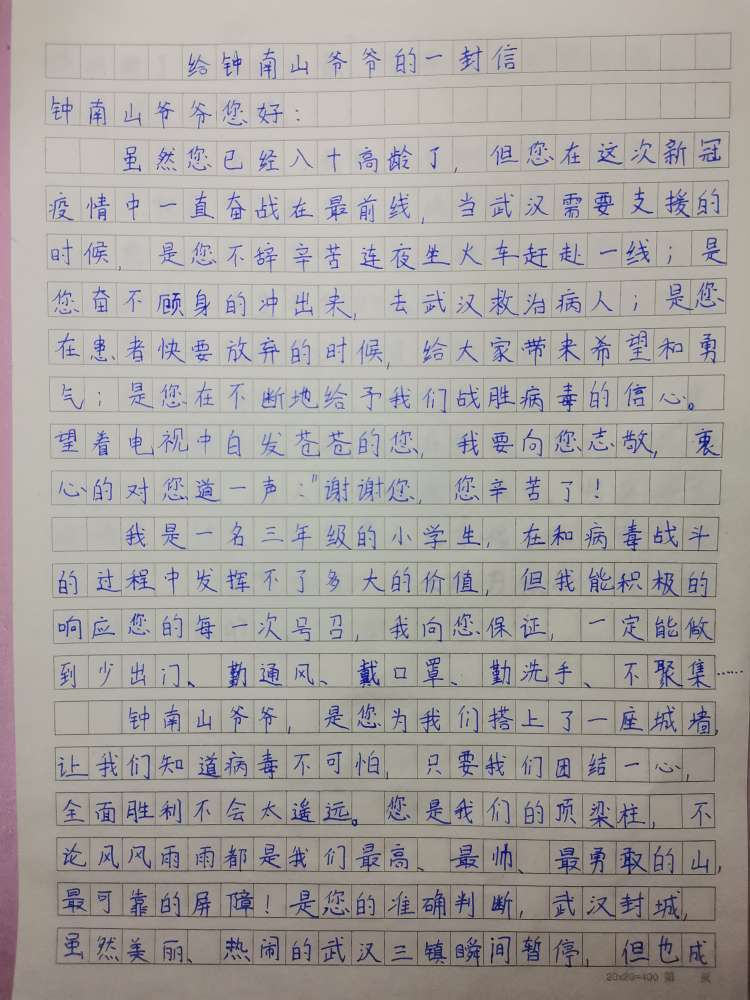 给钟南山爷爷的一封信
钟南山爷爷您好：
虽然您已经八十高龄了，但您在这次新冠
疫情中一直奋战在最前线，当武汉需要支援的
时候，是您不辞辛苦连夜坐火车赶赴一线；是
您奋不顾身的冲出来，去武汉救治病人；是您
在患者快要放弃的时候，给大家带来希望和勇
气；是您在不断地给予我们战胜病毒的信心。
望着电视中白发苍苍的您，我要向您志敬，衷
心的对您道一声："谢谢您，您辛苦了！
我是一名三年级的小学生，在和病毒战斗
的过程中发挥不了多大的价值，但我能积极的
响应您的每一次号召，我向您保证，一定能做
到少出门、勤通风、戴口罩、勤洗手、不聚集……
钟南山爷爷，是您为我们搭上了一座城墙，
让我们知道病毒不可怕，只要我们团结一心，
全面胜利不会太遥远。您是我们的顶梁柱，不
论风风雨雨都是我们最高、最帅、最勇敢的山，
最可靠的屏障！是您的准确判断，武汉封城，
虽然美丽、热闹的武汉三镇瞬间暂停，但也成
20×20=400 第 页